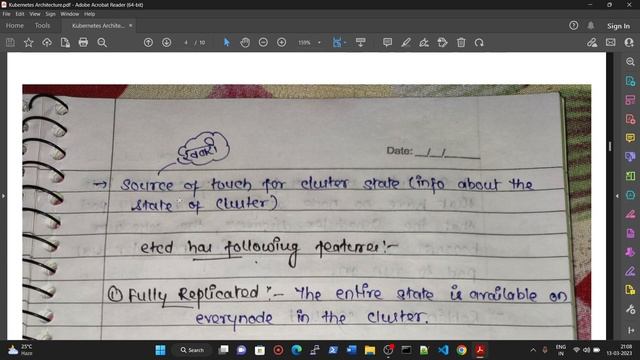 Kubernetes Architecture.pdf - Adobe Acrobat Reader (64-bit)
File Edit View Sign Window Help
Home Tools Kubernetes Archite... × Sign In
4 / 10 159%
Date: __/__/____
→ Source of touch for cluster state (info about the
state of cluster)
etcd has following features:-
① Fully Replicated :- The entire state is available on
everynode in the cluster.
25°C
Haze
Search
ENG
IN
21:08
13-03-2023